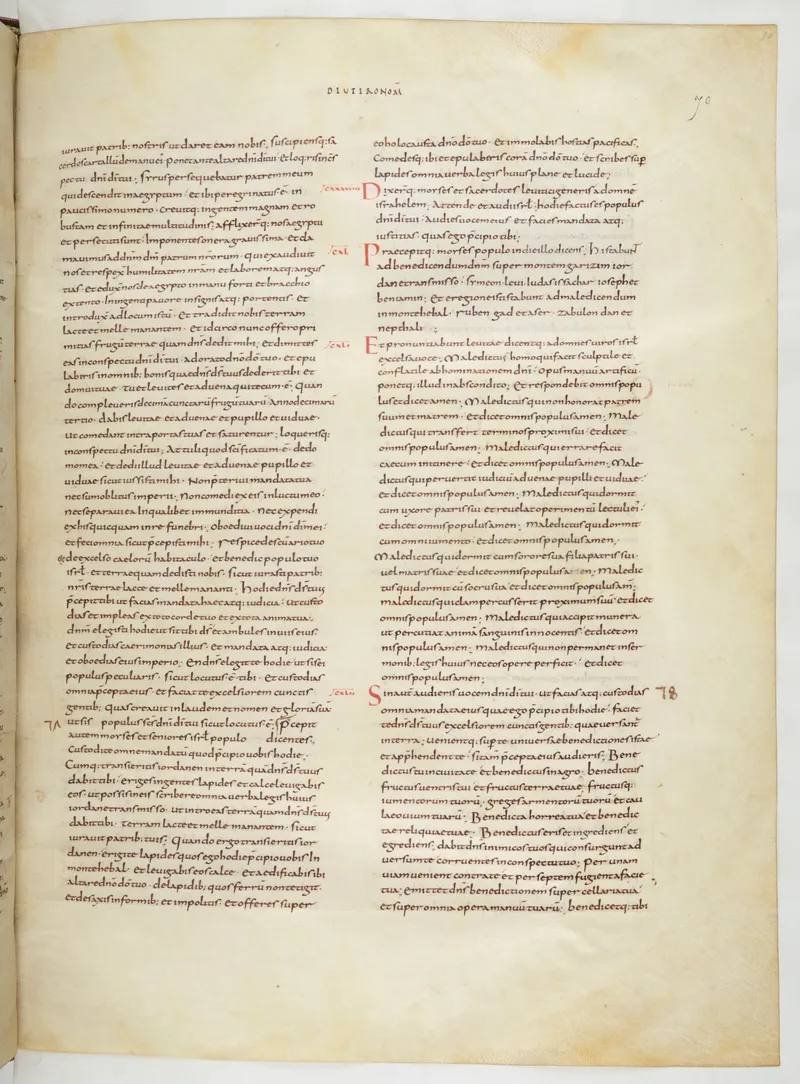 DEUTERONOM̄
70
iurauit patrib: nostris ut daret eam nobis; suscipiensq: sa
cerdos cartallū de manu eius ponet ante altare dn̄i dī tui · et loq:ris in cōs
pectu dn̄i dī tui; Syrus persequebatur patrem meum
qui descendit in aegyptum · et ibi peregrinatus ē in
paucissimo numero · creuitq: in gentem magnam et ro
bustam et infinitae multitudinis; afflixerq: nos aegyptii
et persecuti sunt · Imponentes onera grauissima · et cla
mauimus ad dn̄m dm̄ patrum nr̄orum · qui exaudiuit
nos et respex̄ humilitatem nr̄am et laborem atq: angus
tias · et eduxit nos de aegypto in manu forti et brachio
extento · In ingenti pauore in signis atq: portentis · et
introdux̄ ad locum istū · et tradidit nobis terram
lacte et melle manantem · et idcirco nunc offero pri
mitias frugū terrae quam dn̄s dedit mihi; et dimittes
eas in conspectu dn̄i dī tui · adorato dn̄o dō tuo · et epu
laberis in omnib; bonis quae dn̄s dī tuus dederit tibi et
domui tuae · tu et leuites et aduena qui tecum ē · Quan
do compleueris decimā cunctarū frugū tuarū · Anno decimarū
tertio · dabis leuitae et aduenae et pupillo et uiduae ·
ut comedant intra portas tuas et saturentur; loquerisq:
in conspectu dn̄i dī tui; Abstuli quod sc̄ificatum ē · de do
mo mea · et dedi illud leuitae et aduenae pupillo et
uiduae sicut iussisti mihi · Non p̄teriui mandata tua
nec sum oblitus imperii · Non comedi ex eis in luctu meo ·
nec separaui ea in qualibet inmunditia · nec expendi
ex his quicquam in re funebri · Oboediui uoci dn̄i dī mei ·
et feci omnia sicut p̄cepisti mihi · respice de sc̄uario tuo
& de excelso caelorū habitaculo · et benedic populo tuo
isrl̄ · et terrae quam dedisti nobis · sicut iurasti patrib:
nr̄is terrae lacte et melle mananti · Hodie dn̄s dī tuus
p̄cepit tibi ut facias mandata haec atq: iudicia · ut custo
dias et impleas ex toto corde tuo et ex tota anima tua ·
dn̄m elegisti hodie ut sit tibi dī et ambules in uiis eius ·
et custodias caerimonias illius · et mandata atq: iudicia ·
et oboedias eius imperio · En dn̄s elegit te hodie · ut sis ei
populus peculiaris · sicut locutus ē tibi · et custodias
omnia p̄cepta eius · et faciat te excelsiorem cunctis
gentib; quas creauit in laudem et nomen et gloriā suā
ut sis populus scs̄ dn̄i dī tui sicut locutus ē; Praecepit
autem moyses et seniores isrl̄ populo dicentes;
Custodite omne mandatū quod p̄cipio uobis hodie ·
Cumq: transieritis iordanem in terrā quā dn̄s dī tuus
dabit tibi · eriges ingentes lapides et calce leuigabis
eos · ut possis in eis scribere omnia uerba legis huius
iordane transmisso · ut introeas terrā quam dn̄s dī tuus
dabit tibi · terram lacte et melle manantem · sicut
iurauit patrib: tuis; Quando ergo transieritis ior
danen · erigite lapides quos ego hodie p̄cipio uobis In
monte hebal · et leuigabis eos calce · et aedificabis ibi
altare dn̄o dō tuo · de lapidib; quos ferrū non tetigit ·
et de saxis informib; et impolitis · et offeres super
eo holocausta dn̄o dō tuo · et immolabis hostias pacificas ·
Comedesq: ibi et epulaberis corā dn̄o dō tuo · et scribes sup
lapides omnia uerba legis huius plane et lucide;
Dixerq: moyses et sacerdotes leuitici generis ad omnē
israhelem; Attende et audi isrl̄ · hodie factus es populus
dn̄i dī tui · Audies uocem eius et facies mandata atq:
iustitias quas ego p̄cipio tibi ·
Praecepitq: moyses populo in die illo dicens; Hi stabunt
ad benedicendum dn̄m super montem garizim ior
dane transmisso · symeon · leui · Iudas · issachar · ioseph et
beniamin; et e regione isti stabunt ad maledicendum
in monte hebal · ruben gad et aser · zabulon dan et
nepthali · ;
Et pronuntiabunt leuitae dicentq: ad omnes uiros isrl̄
excelsa uoce; Maledictus homo qui facit sculptile et
conflatile abhominationem dn̄i · opus manuū artificū ·
ponetq: illud in abscondito; et respondebit omnis popu
lus et dicet amen; Maledictus qui non honorat patrem
suum et matrem · et dicet omnis populus amen; Male
dictus qui transfert terminos proximi sui · et dicet
omnis populus amen; Maledictus qui errare facit
caecum in itinere · et dicet omnis populus amen; Male
dictus qui peruertit iudiciū aduenae pupilli et uiduae ·
et dicet omnis populus amen; Maledictus qui dormit
cum uxore patris sui et reuelat operimentū lectuli ei: ·
et dicet omnis populus amen; Maledictus qui dormit
cum omni iumento · et dicet omnis populus amen;
Maledictus qui dormit cum sorore sua filia patris sui ·
uel matris suae et dicet omnis populus amen; Maledic
tus qui dormit cū socru sua et dicet omnis populus am̄;
maledictus qui clam percusserit proximum suū · et dicet
omnis populus amen; Maledictus qui accipit munera
ut percutiat animā sanguinis innocentis · et dicet om
nis populus amen; Maledictus qui non permanet in ser
monib: legis huius nec eos opere perficit · et dicet
omnis populus amen;
Sin autē audieris uocem dn̄i dī tui · ut facias atq: custodias
omnia mandata eius quae ego p̄cipio tibi hodie · faciet
te dn̄s dī tuus excelsiorem cunctis gentib: quae uersant̄
in terra; Uenientq: sup te uniuersae benedictiones istae ·
et app̄hendent te · si tam̄ p̄cepta eius audieris; Bene
dictus tu in ciuitate et benedictus in agro; benedictus
fructus uentris tui et fructus terrae tuae · fructusq:
iumentorum tuorū · greges armentorū tuorū et cau
lae ouium tuarū; Benedicta horrea tua et benedic
tae reliquiae tuae; Benedictus eris et ingrediens et
egrediens; dabit dn̄s inimicos tuos qui consurgunt ad
uersum te corruentes in conspectu tuo; per unam
uiam uenient contra te et per septem fugient a facie
tua; emittet dn̄s benedictionem super cellaria tua
et super omnia opera manuū tuarū; benedicetq: tibi